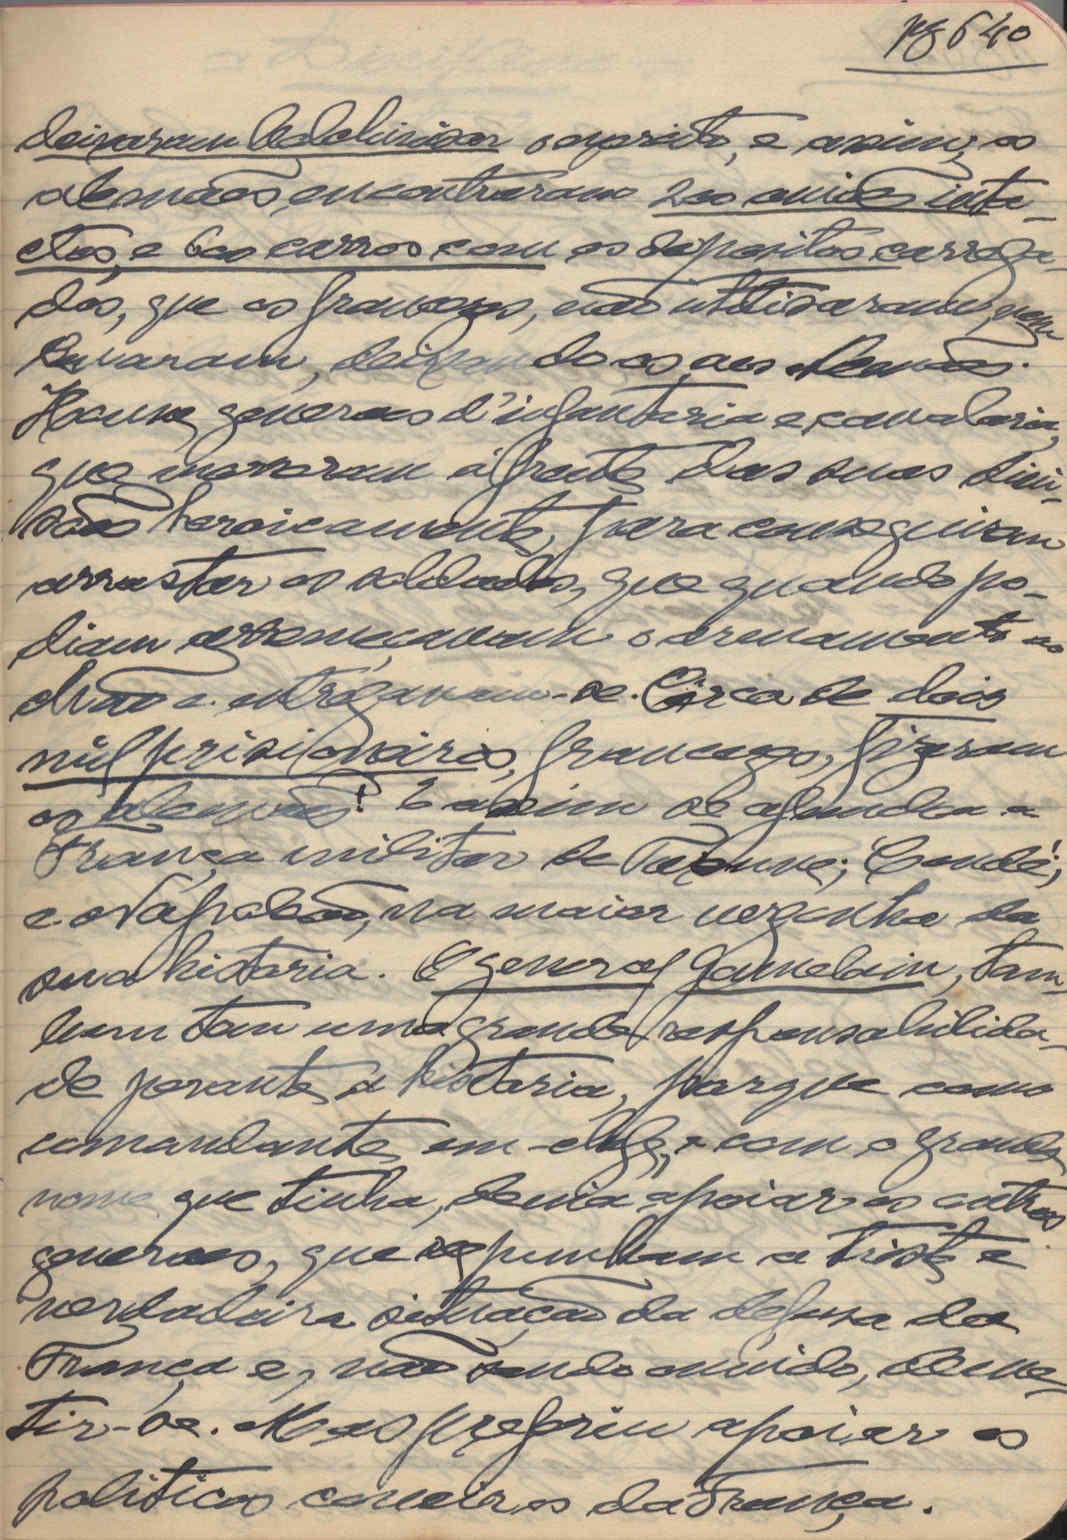 pg 640
deixaram bolchevisar o exercito, e assim, os
alemães, encontraram 200 aviões inta-
ctos, e 600 carros com os depositos carrega-
dos, que os francezes, não utilisaram, nem
levaram, deixando os aos alemães.
Houve generaes d'infantaria e cavalaria,
que morreram á frente das suas divi-
sões heroicamente, para conseguirem
arrastar os soldados, que quando po-
diam arremeçavam o armamento ao
chão e entregavam-se. Cerca de dois
mil prisioneiros, francezes, fizeram
os alemães! E assim se afundou a
França militar de Turenne; Condé;
e Napoleão, na maior vergonha da
sua historia. O general Gamelain, tam-
bem tem uma grande responsabilida-
de perante a historia, porque como
comandante em-chefe, e com o grande
nome que tinha, devia apoiar os outros
generaes, que expunham a triste e
verdadeira situação da defesa da
França e, não sendo ouvido, deme-
tir-se. Mas preferiu apoiar os
politicos coveiros da França.